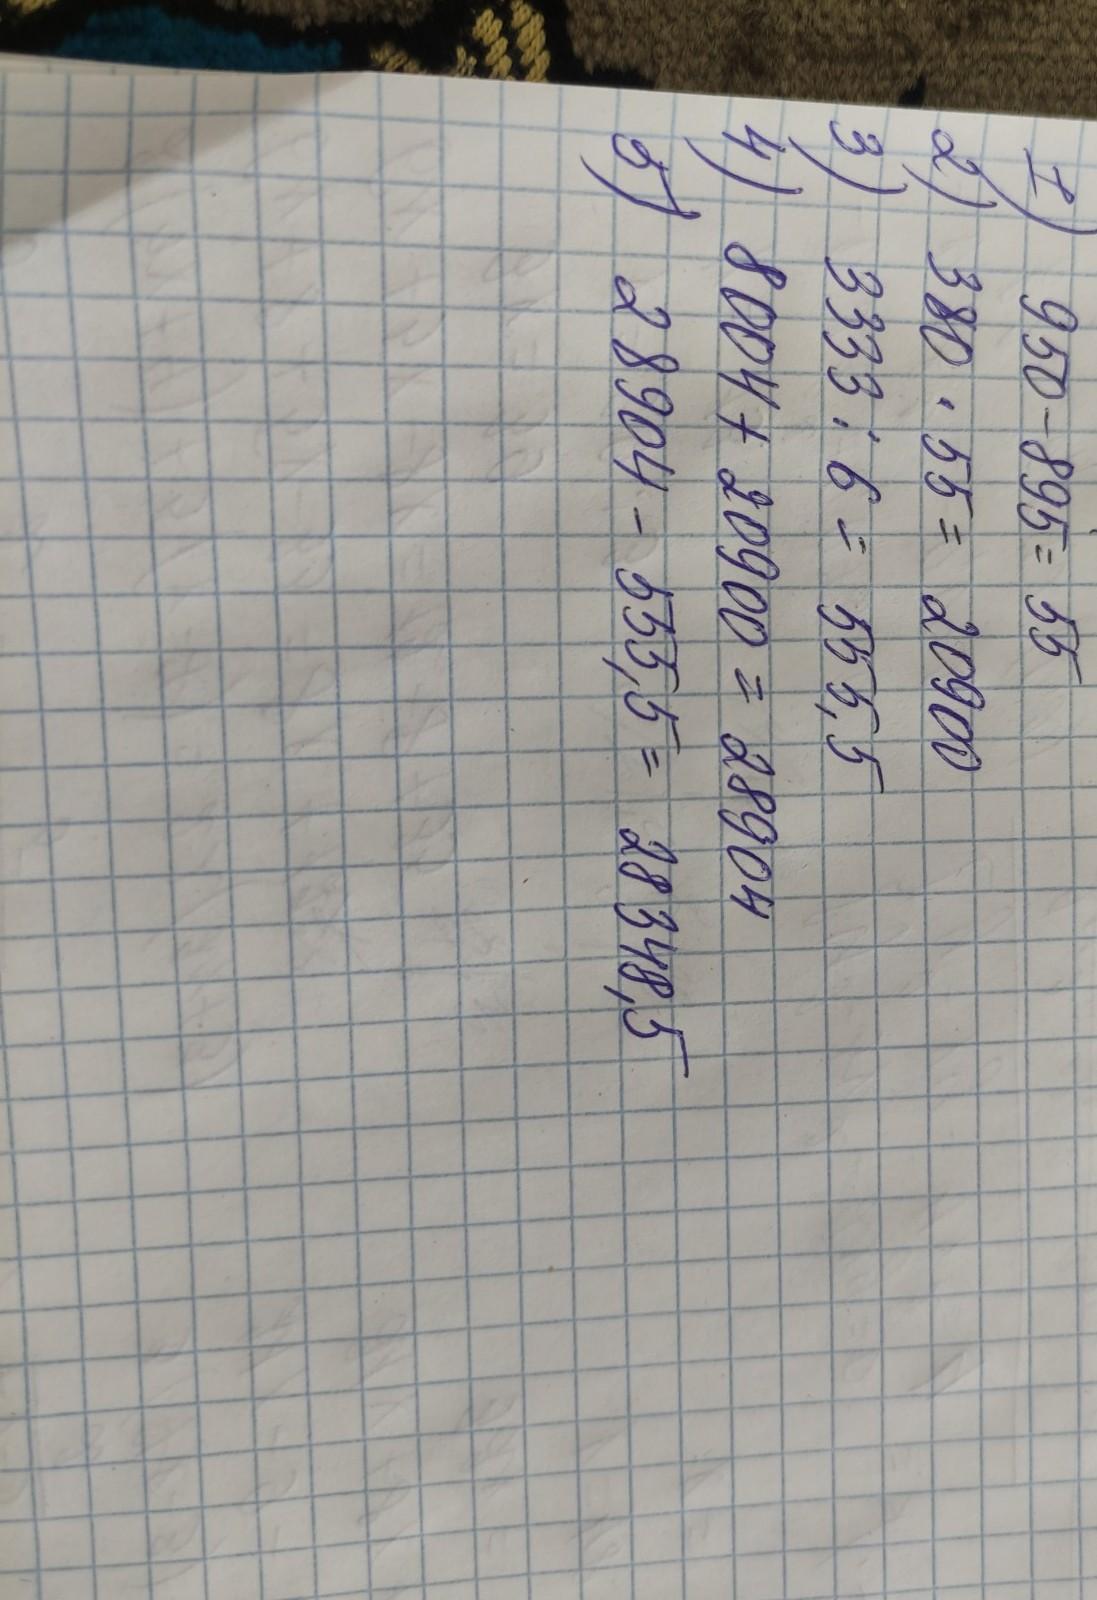 1) 950-895=55
2) 380·55=20900
3) 3333:6=555,5
4) 8004+20900=28904
5) 28904-555,5=28348,5